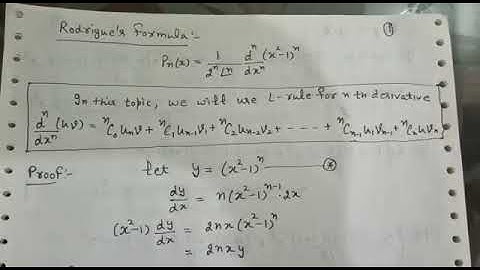 Rodrigue's Formula:-
①
Pₙ(x) = 1/(2ⁿ ∟n) dⁿ/dxⁿ (x²-1)ⁿ
In this topic, we will use L-rule for n th derivative
dⁿ/dxⁿ (uv) = ⁿC₀ uₙv + ⁿC₁ uₙ₋₁v₁ + ⁿC₂ uₙ₋₂v₂ + - - - - + ⁿCₙ₋₁ u₁vₙ₋₁ + ⁿCₙ uvₙ
Proof:- let y = (x²-1)ⁿ —— ⊛
dy/dx = n(x²-1)ⁿ⁻¹·2x
(x²-1) dy/dx = 2nx(x²-1)ⁿ
= 2nxy